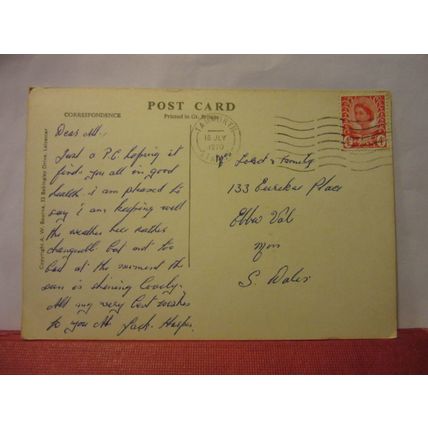 POST CARD
CORRESPONDENCE
Printed in Gt. Britain
Copyright A. W. Bourne, 23 Babingley Drive, Leicester
TAMWORTH
18 JLY
1970
STAFFS
Dear All.
Just a P.C hoping it
finds you all in good
health i am pleased to
say i am keeping well
the weather here rather
changeable but not too
bad at the moment the
sun is shining lovely.
All my very best wishes
to you All Jack. Harper.
Lord & Family
133 Eureka Place
Ebbw Val
Mon
S. Wales